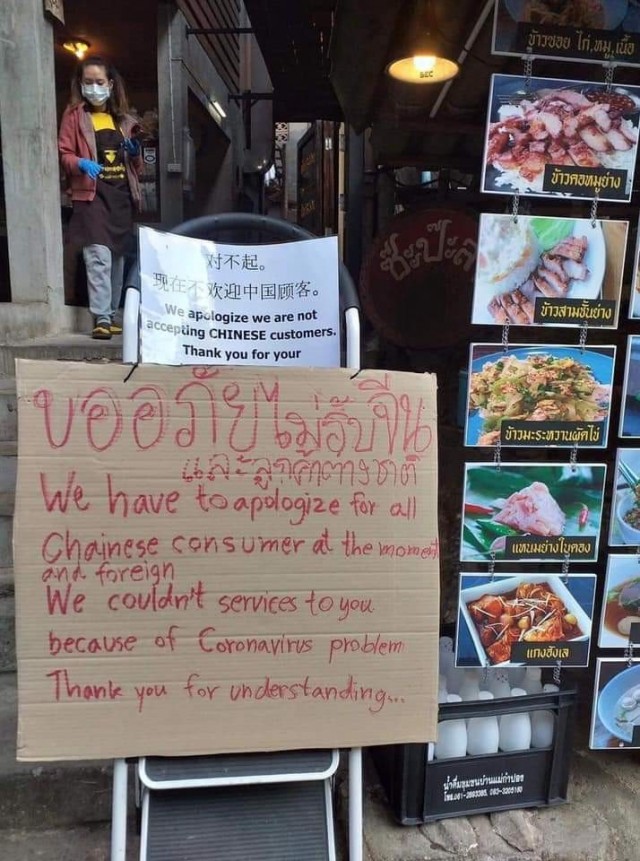 对不起。
现在不欢迎中国顾客。
We apologize we are not
accepting CHINESE customers.
Thank you for your
ขออภัยไม่รับจีน
และลูกค้าต่างชาติ
We have to apologize for all
Chainese consumer at the moment
and foreign
We couldn't services to you
because of Coronavirus problem
Thank you for understanding...
ข้าวซอย ไก่,หมู,เนื้อ
ข้าวคอหมูย่าง
ข้าวสามชั้นย่าง
ข้าวมะระหวานผัดไข่
แหนมย่างใบตอง
แกงฮังเล
น้ำดื่มชุมชนบ้านแม่กำปอง